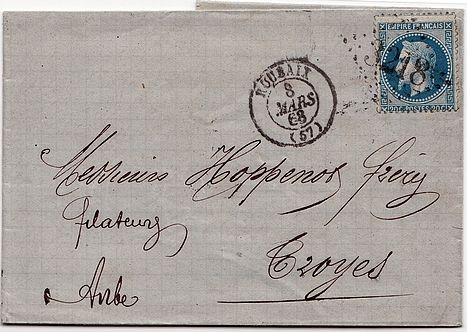 EMPIRE FRANÇAIS
20C POSTES 20C
ROUBAIX
8
MARS
68
(57)
Messieurs Hoppenot frères
filateurs
Troyes
Aube